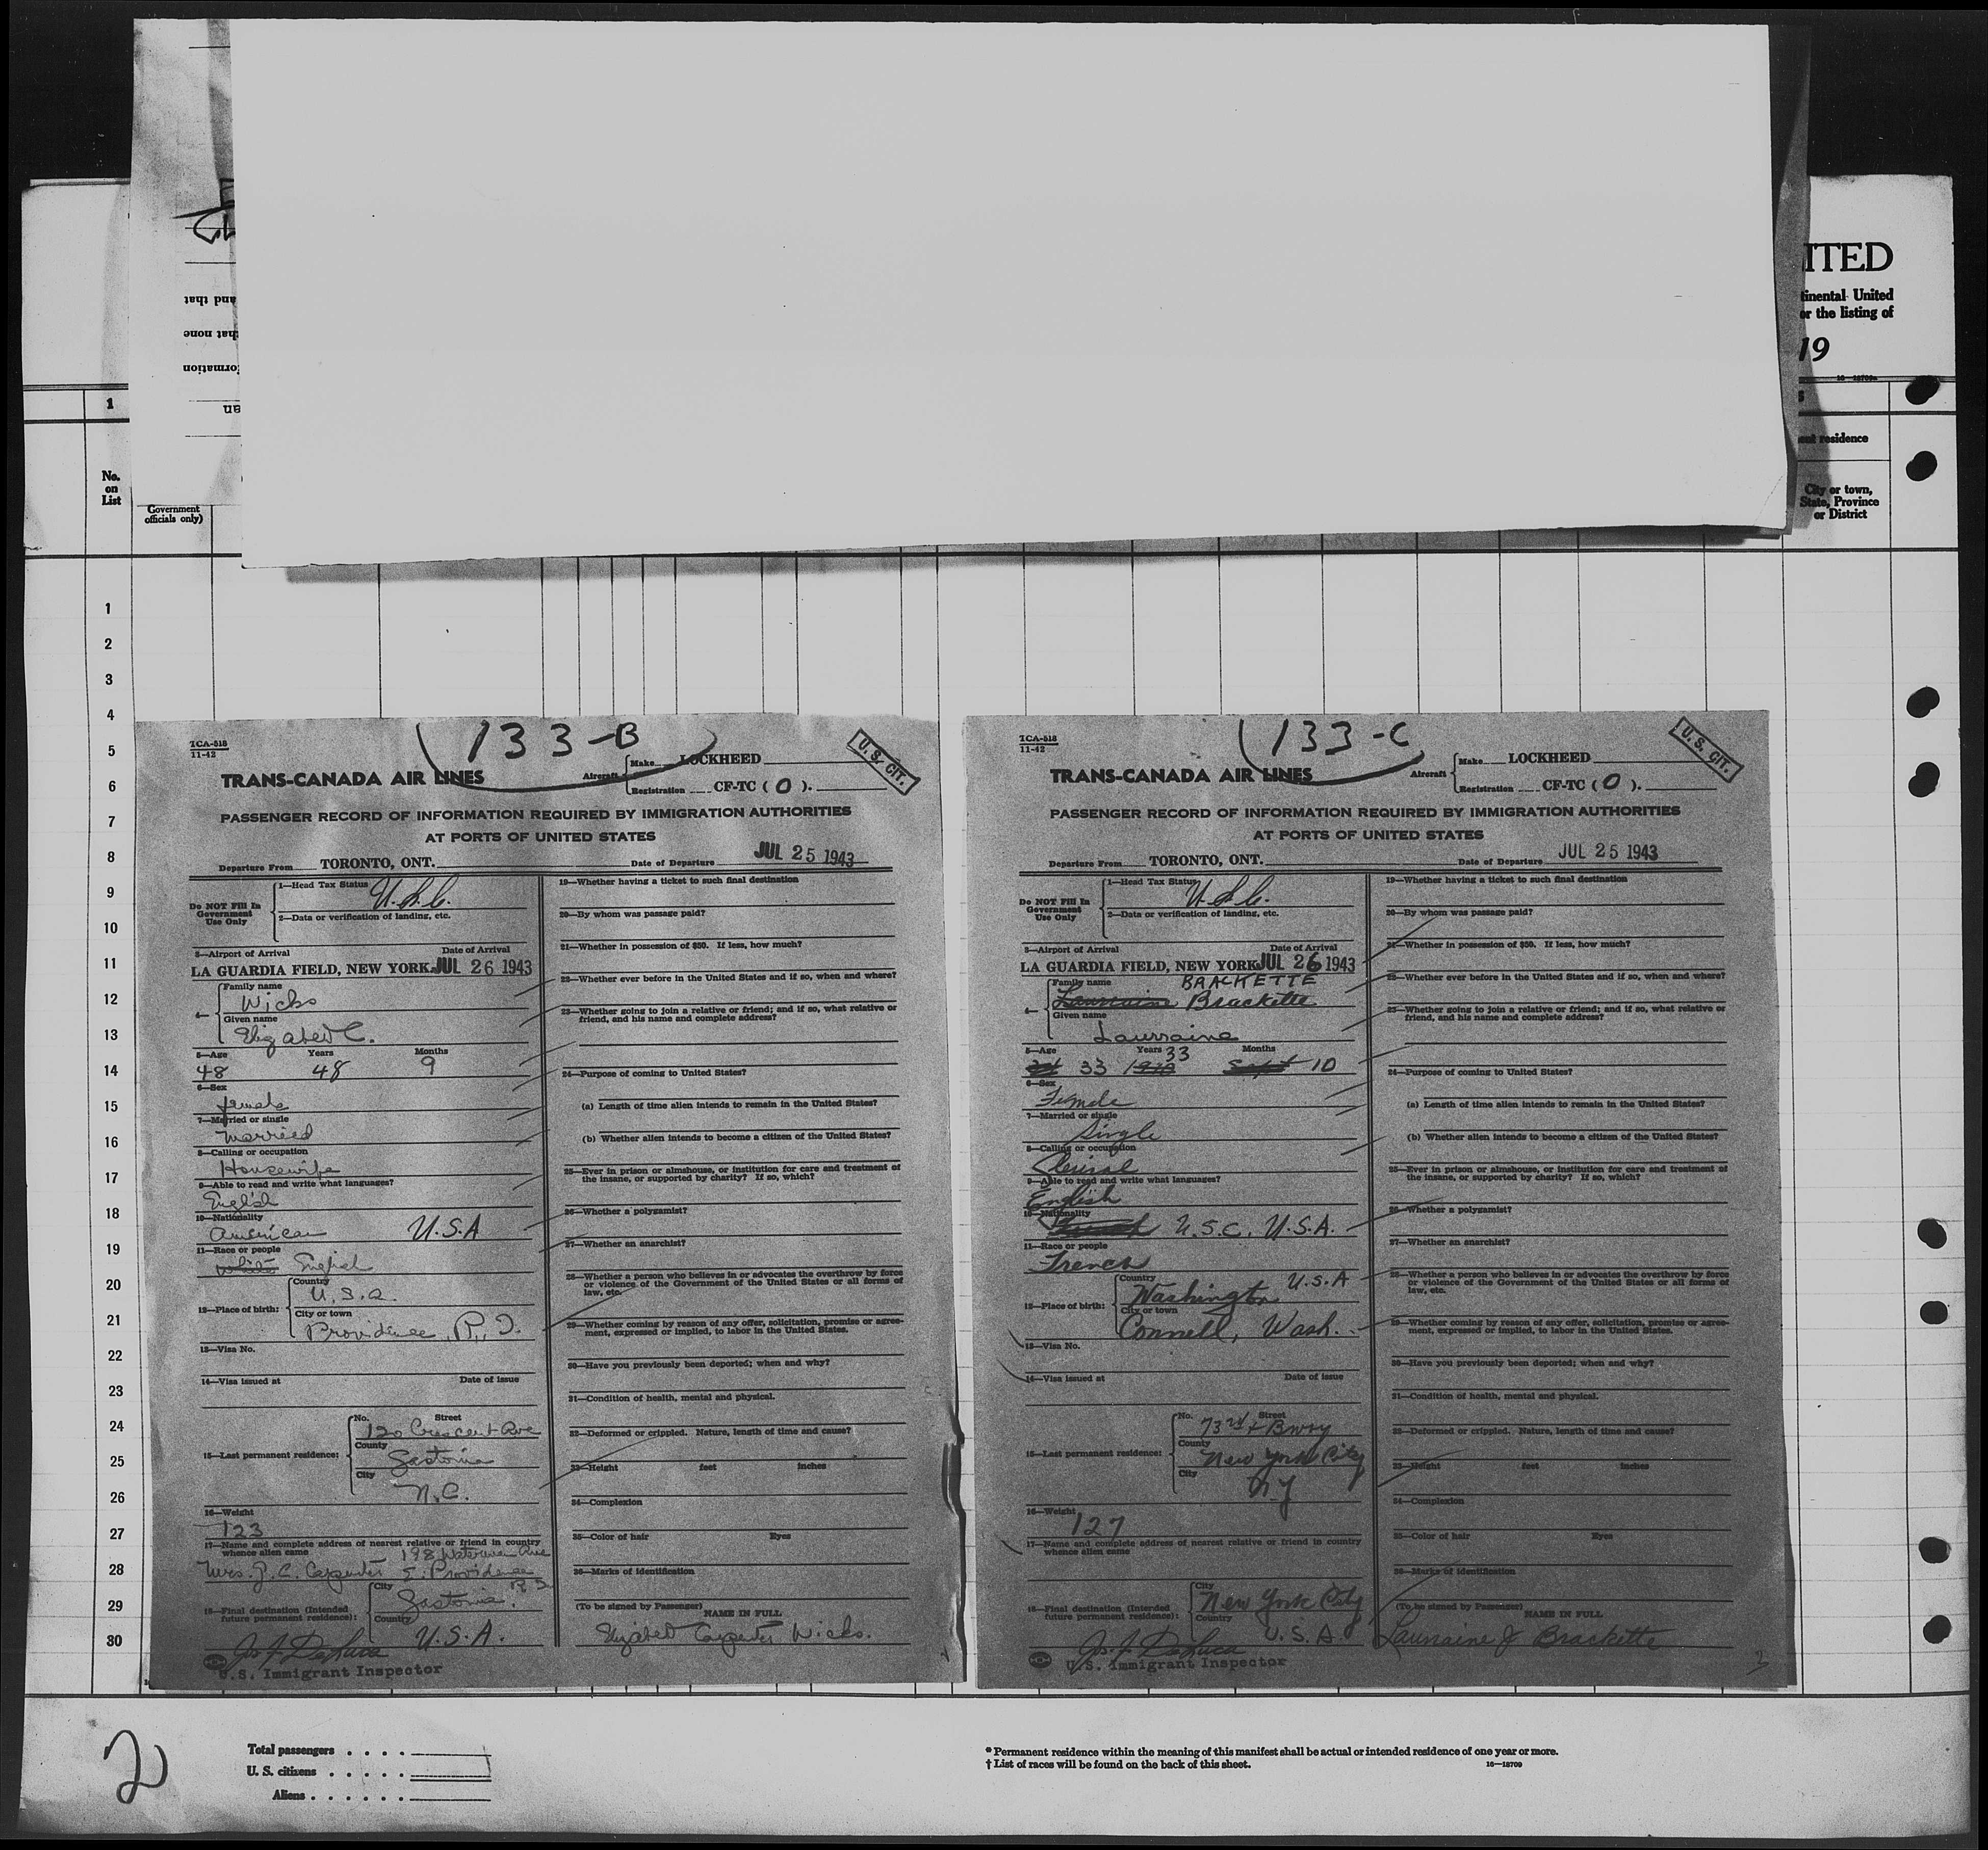 ITED
tinental United
or the listing of
19
16—18709
and that
that none
ormation
an
1
No.
on
List
Government
officials only)
ent residence
City or town,
State, Province
or District
1
2
3
4
5
6
7
8
9
10
11
12
13
14
15
16
17
18
19
20
21
22
23
24
25
26
27
28
29
30
133-B
TCA-518
11-42
U. S. CIT.
TRANS-CANADA AIR LINES
Aircraft
Make LOCKHEED
Registration CF-TC ( O ).
PASSENGER RECORD OF INFORMATION REQUIRED BY IMMIGRATION AUTHORITIES
AT PORTS OF UNITED STATES
Departure From TORONTO, ONT. Date of Departure JUL 25 1943
Do NOT Fill In
Government
Use Only
1—Head Tax Status U.S.C.
2—Data or verification of landing, etc.
3—Airport of Arrival Date of Arrival
LA GUARDIA FIELD, NEW YORK JUL 26 1943
4—
Family name
Wicks
Given name
Elizabeth C.
5—Age Years Months
48 48 9
6—Sex
female
7—Married or single
Married
8—Calling or occupation
Housewife
9—Able to read and write what languages?
English
10—Nationality
American U.S.A
11—Race or people
White English
12—Place of birth:
Country
U.S.A.
City or town
Providence, R.I.
13—Visa No.
14—Visa issued at Date of issue
15—Last permanent residence:
No. Street
120 Crescent Ave
County
Gastonia
City
N.C.
16—Weight
123
17—Name and complete address of nearest relative or friend in country
whence alien came 198 Waterman Ave
Mrs. J. C. Carpenter E. Providence
R.I.
18—Final destination (Intended
future permanent residence):
City
Gastonia.
Country
U.S.A.
Jos. J. DeLuca
U.S. Immigrant Inspector
19—Whether having a ticket to such final destination
20—By whom was passage paid?
21—Whether in possession of $50. If less, how much?
22—Whether ever before in the United States and if so, when and where?
23—Whether going to join a relative or friend; and if so, what relative or
friend, and his name and complete address?
24—Purpose of coming to United States?
(a) Length of time alien intends to remain in the United States?
(b) Whether alien intends to become a citizen of the United States?
25—Ever in prison or almshouse, or institution for care and treatment of
the insane, or supported by charity? If so, which?
26—Whether a polygamist?
27—Whether an anarchist?
28—Whether a person who believes in or advocates the overthrow by force
or violence of the Government of the United States or all forms of
law, etc.
29—Whether coming by reason of any offer, solicitation, promise or agree-
ment, expressed or implied, to labor in the United States.
30—Have you previously been deported; when and why?
31—Condition of health, mental and physical.
32—Deformed or crippled. Nature, length of time and cause?
33—Height feet inches
34—Complexion
35—Color of hair Eyes
36—Marks of identification
(To be signed by Passenger) NAME IN FULL
Elizabeth Carpenter Wicks.
133-C
TCA-518
11-42
U. S. CIT.
TRANS-CANADA AIR LINES
Aircraft
Make LOCKHEED
Registration CF-TC ( O ).
PASSENGER RECORD OF INFORMATION REQUIRED BY IMMIGRATION AUTHORITIES
AT PORTS OF UNITED STATES
Departure From TORONTO, ONT. Date of Departure JUL 25 1943
Do NOT Fill In
Government
Use Only
1—Head Tax Status U.S.C.
2—Data or verification of landing, etc.
3—Airport of Arrival Date of Arrival
LA GUARDIA FIELD, NEW YORK JUL 26 1943
4—
Family name BRACKETTE
Laurraine Brackette
Given name
Laurraine
5—Age Years 33 Months
33 1910 Sept 10
6—Sex
Female
7—Married or single
Single
8—Calling or occupation
Clerical
9—Able to read and write what languages?
English
10—Nationality
French U.S.C. U.S.A.
11—Race or people
French
12—Place of birth:
Country U.S.A
Washington
City or town
Connell, Wash.
13—Visa No.
14—Visa issued at Date of issue
15—Last permanent residence:
No. Street
73rd & Bwry
County
New York City
City
NY
16—Weight
127
17—Name and complete address of nearest relative or friend in country
whence alien came
18—Final destination (Intended
future permanent residence):
City
New York City
Country
U.S.A.
Jos. J. DeLuca
U.S. Immigrant Inspector
19—Whether having a ticket to such final destination
20—By whom was passage paid?
21—Whether in possession of $50. If less, how much?
22—Whether ever before in the United States and if so, when and where?
23—Whether going to join a relative or friend; and if so, what relative or
friend, and his name and complete address?
24—Purpose of coming to United States?
(a) Length of time alien intends to remain in the United States?
(b) Whether alien intends to become a citizen of the United States?
25—Ever in prison or almshouse, or institution for care and treatment of
the insane, or supported by charity? If so, which?
26—Whether a polygamist?
27—Whether an anarchist?
28—Whether a person who believes in or advocates the overthrow by force
or violence of the Government of the United States or all forms of
law, etc.
29—Whether coming by reason of any offer, solicitation, promise or agree-
ment, expressed or implied, to labor in the United States.
30—Have you previously been deported; when and why?
31—Condition of health, mental and physical.
32—Deformed or crippled. Nature, length of time and cause?
33—Height feet inches
34—Complexion
35—Color of hair Eyes
36—Marks of identification
(To be signed by Passenger) NAME IN FULL
Laurraine J Brackette
2
Total passengers . . . .
U. S. citizens . . . . .
Aliens . . . . . .
* Permanent residence within the meaning of this manifest shall be actual or intended residence of one year or more.
† List of races will be found on the back of this sheet.
16—18709